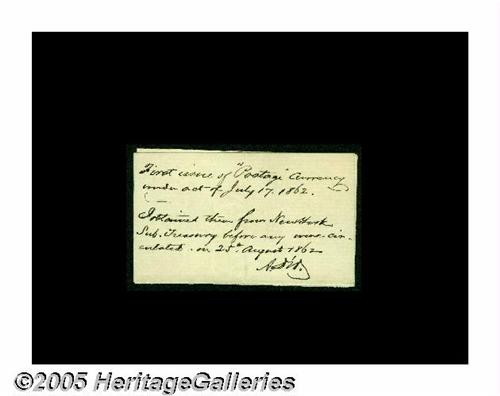 First issue of "Postage" Currency
under act of July 17. 1862.
I obtained them from New York
Sub. Treasury before any were cir-
culated - in 25th August 1862
©2005 HeritageGalleries